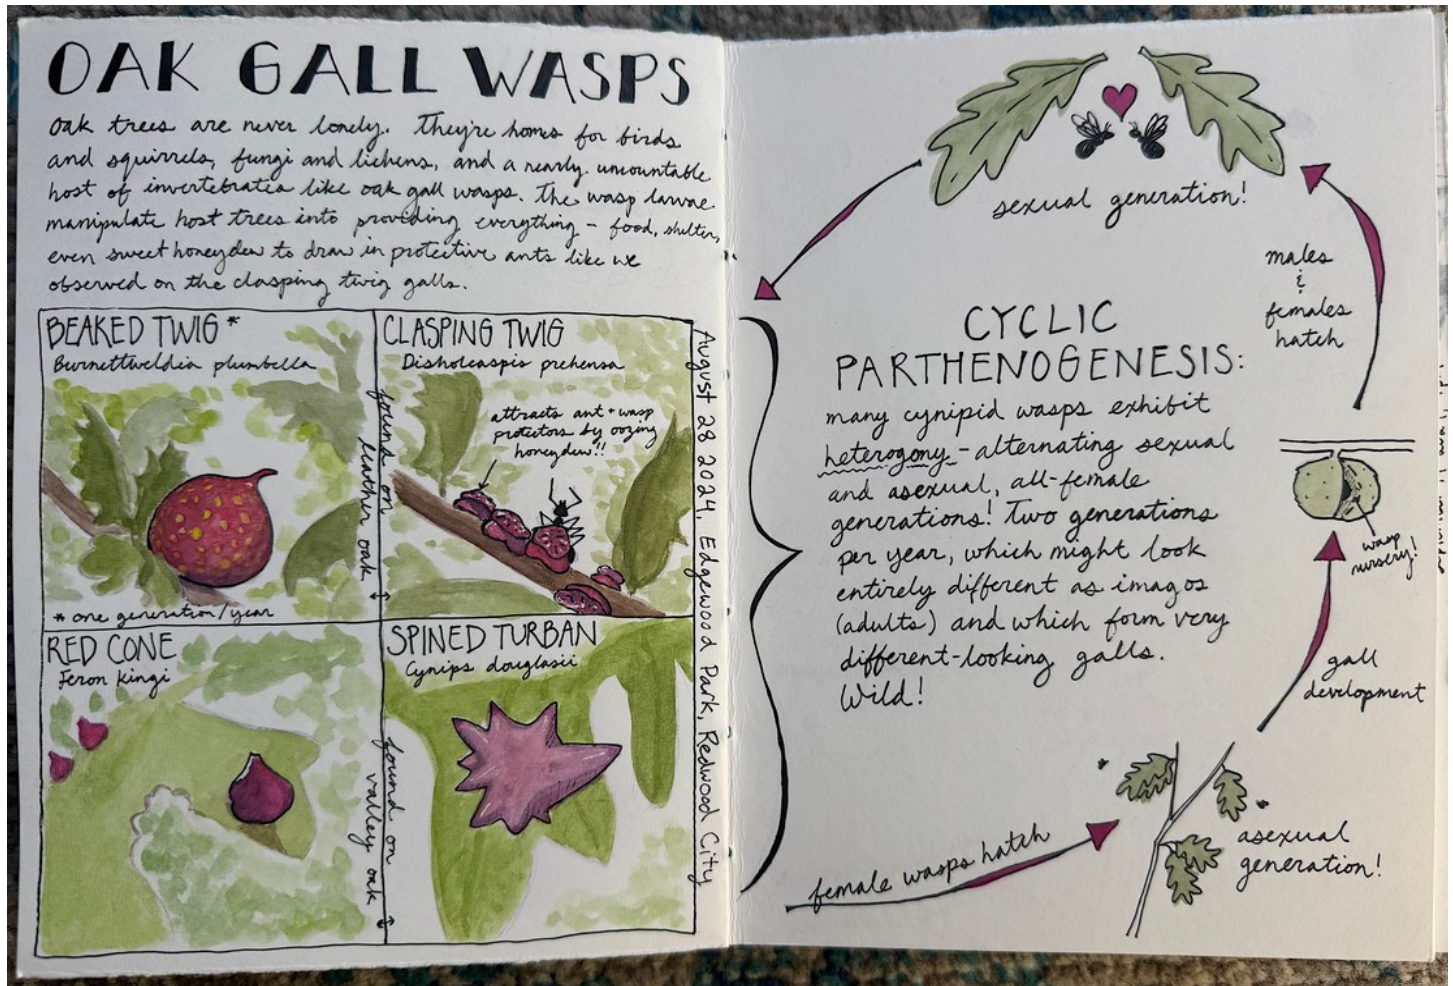 OAK GALL WASPS
Oak trees are never lonely. They're homes for birds
and squirrels, fungi and lichens, and a nearly uncountable
host of invertebrates like oak gall wasps. The wasp larvae
manipulate host trees into providing everything – food, shelter,
even sweet honeydew to draw in protective ants like we
observed on the clasping twig galls.
BEAKED TWIG *
Burnettweldia plumbella
* one generation/year
found on
leather oak
CLASPING TWIG
Disholcaspis prehensa
attracts ant + wasp
protectors by oozing
honeydew!!
RED CONE
Feron kingi
found on
valley oak
SPINED TURBAN
Cynips douglasii
August 28 2024, Edgewood Park, Redwood City
sexual generation!
males
&
females
hatch
CYCLIC
PARTHENOGENESIS:
many cynipid wasps exhibit
heterogony – alternating sexual
and asexual, all-female
generations! Two generations
per year, which might look
entirely different as imagos
(adults) and which form very
different-looking galls.
Wild!
wasp
nursery!
gall
development
asexual
generation!
female wasps hatch